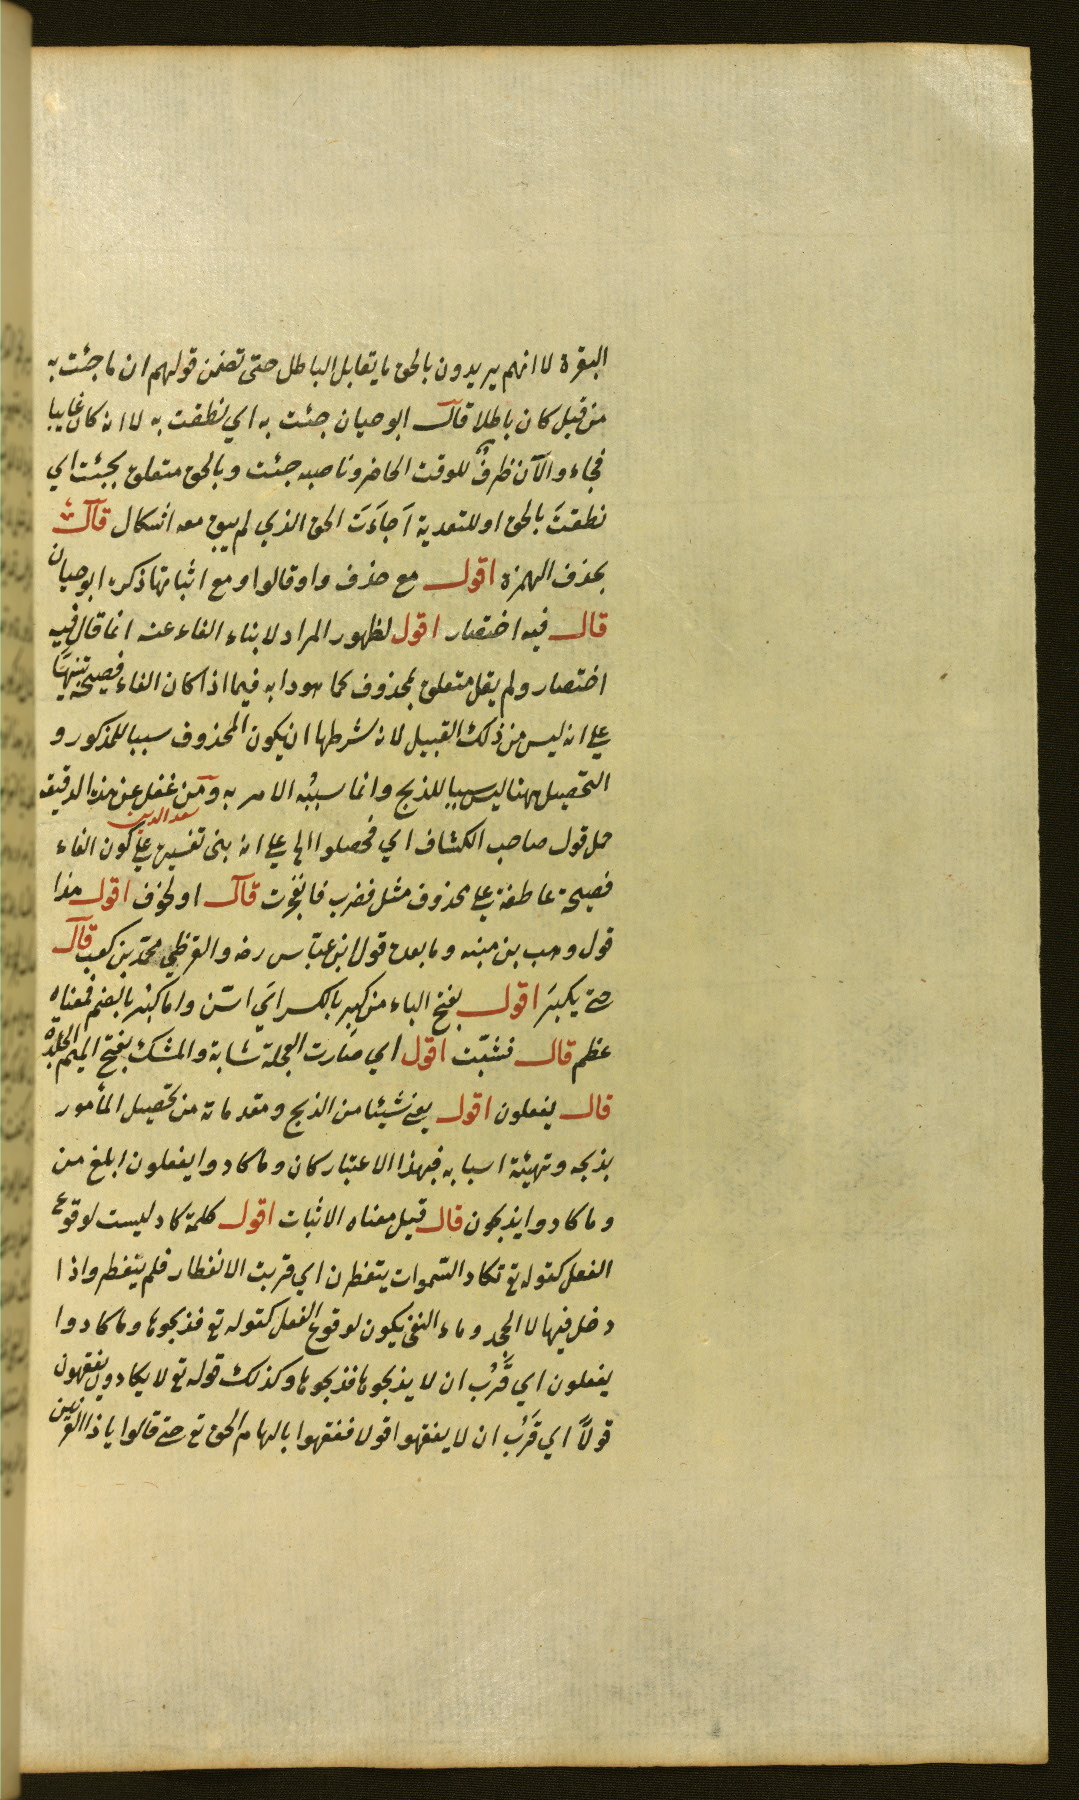 البقرة لا انهم يريدون بالحق ما يقابل الباطل حتى تضمن قولهم ان ما جئت به
من قبل كان باطلا قال ابو حيان جئت به اي نطقت به لا انه كان غايبا
فجاء والآن ظرف للوقت الحاضر وناصبه جئت وبالحق متعلق بجئت اي
نطقت بالحق او للتعدية اَجاءَت الحق الذي لم يبق معه اشكال قال
بحذف الهمزة اقول مع حذف واو قالوا ومع اثباتها ذكره ابو حيان
قال فيه اختصار اقول لظهور المراد لابناء الفاء عنه انما قال فيه
اختصار ولم يقل متعلق بمحذوف كما هو دابه فيما اذا كان الفاء فصيحة تنبيها
على انه ليس من ذلك القبيل لان شرطها ان يكون المحذوف سببا للمذكور و
التحصيل ههنا ليس سببا للذبح وانما سببه الامر به ومن غفل عن هذه الدقيقة
سعد الدين
حمل قول صاحب الكشاف اي فحصلوا الى على انه بنى تفسيره على كون الفاء
فصيحة عاطفة على محذوف مثل فضرب فانفجرت قال او لخوف اقول هذا
قول وهب بن منبه وما بعده قول ابن عباس رضه والقرظي محمد بن كعب قال
حتى يكبَر اقول بفتح الباء من كبِر بالكسر اي اسن واما كبُر بالضم فمعناه
عظم قال فشبّت اقول اي صارت العجلة شابة والمَسك بفتح الميم الجلد
قال يفعلون اقول يعنى شيئا من الذبح ومقدماته من تحصيل المأمور
بذبحه وتهيئة اسبابه فبهذا الاعتبار كان وما كادوا يفعلون ابلغ من
وما كادوا يذبحون قال قيل معناه الاثبات اقول كلمة كاد ليست لوقوع
الفعل كقوله تع تكاد السّموات يتفطرن اي قربت الانفطار فلم يتفطر واذا
دخل فيها لا الجحد وماء النفي يكون لوقوع الفعل كقوله تع فذبحوها وما كادوا
يفعلون اي قَرُب ان لا يذبحوها فذبحوها وكذلك قوله تع لا يكادون يفقهون
قولاً اي قرب ان لا يفقهوا قولا ففقهوا بالهام الحق تع حتى قالوا يا ذا القرنين